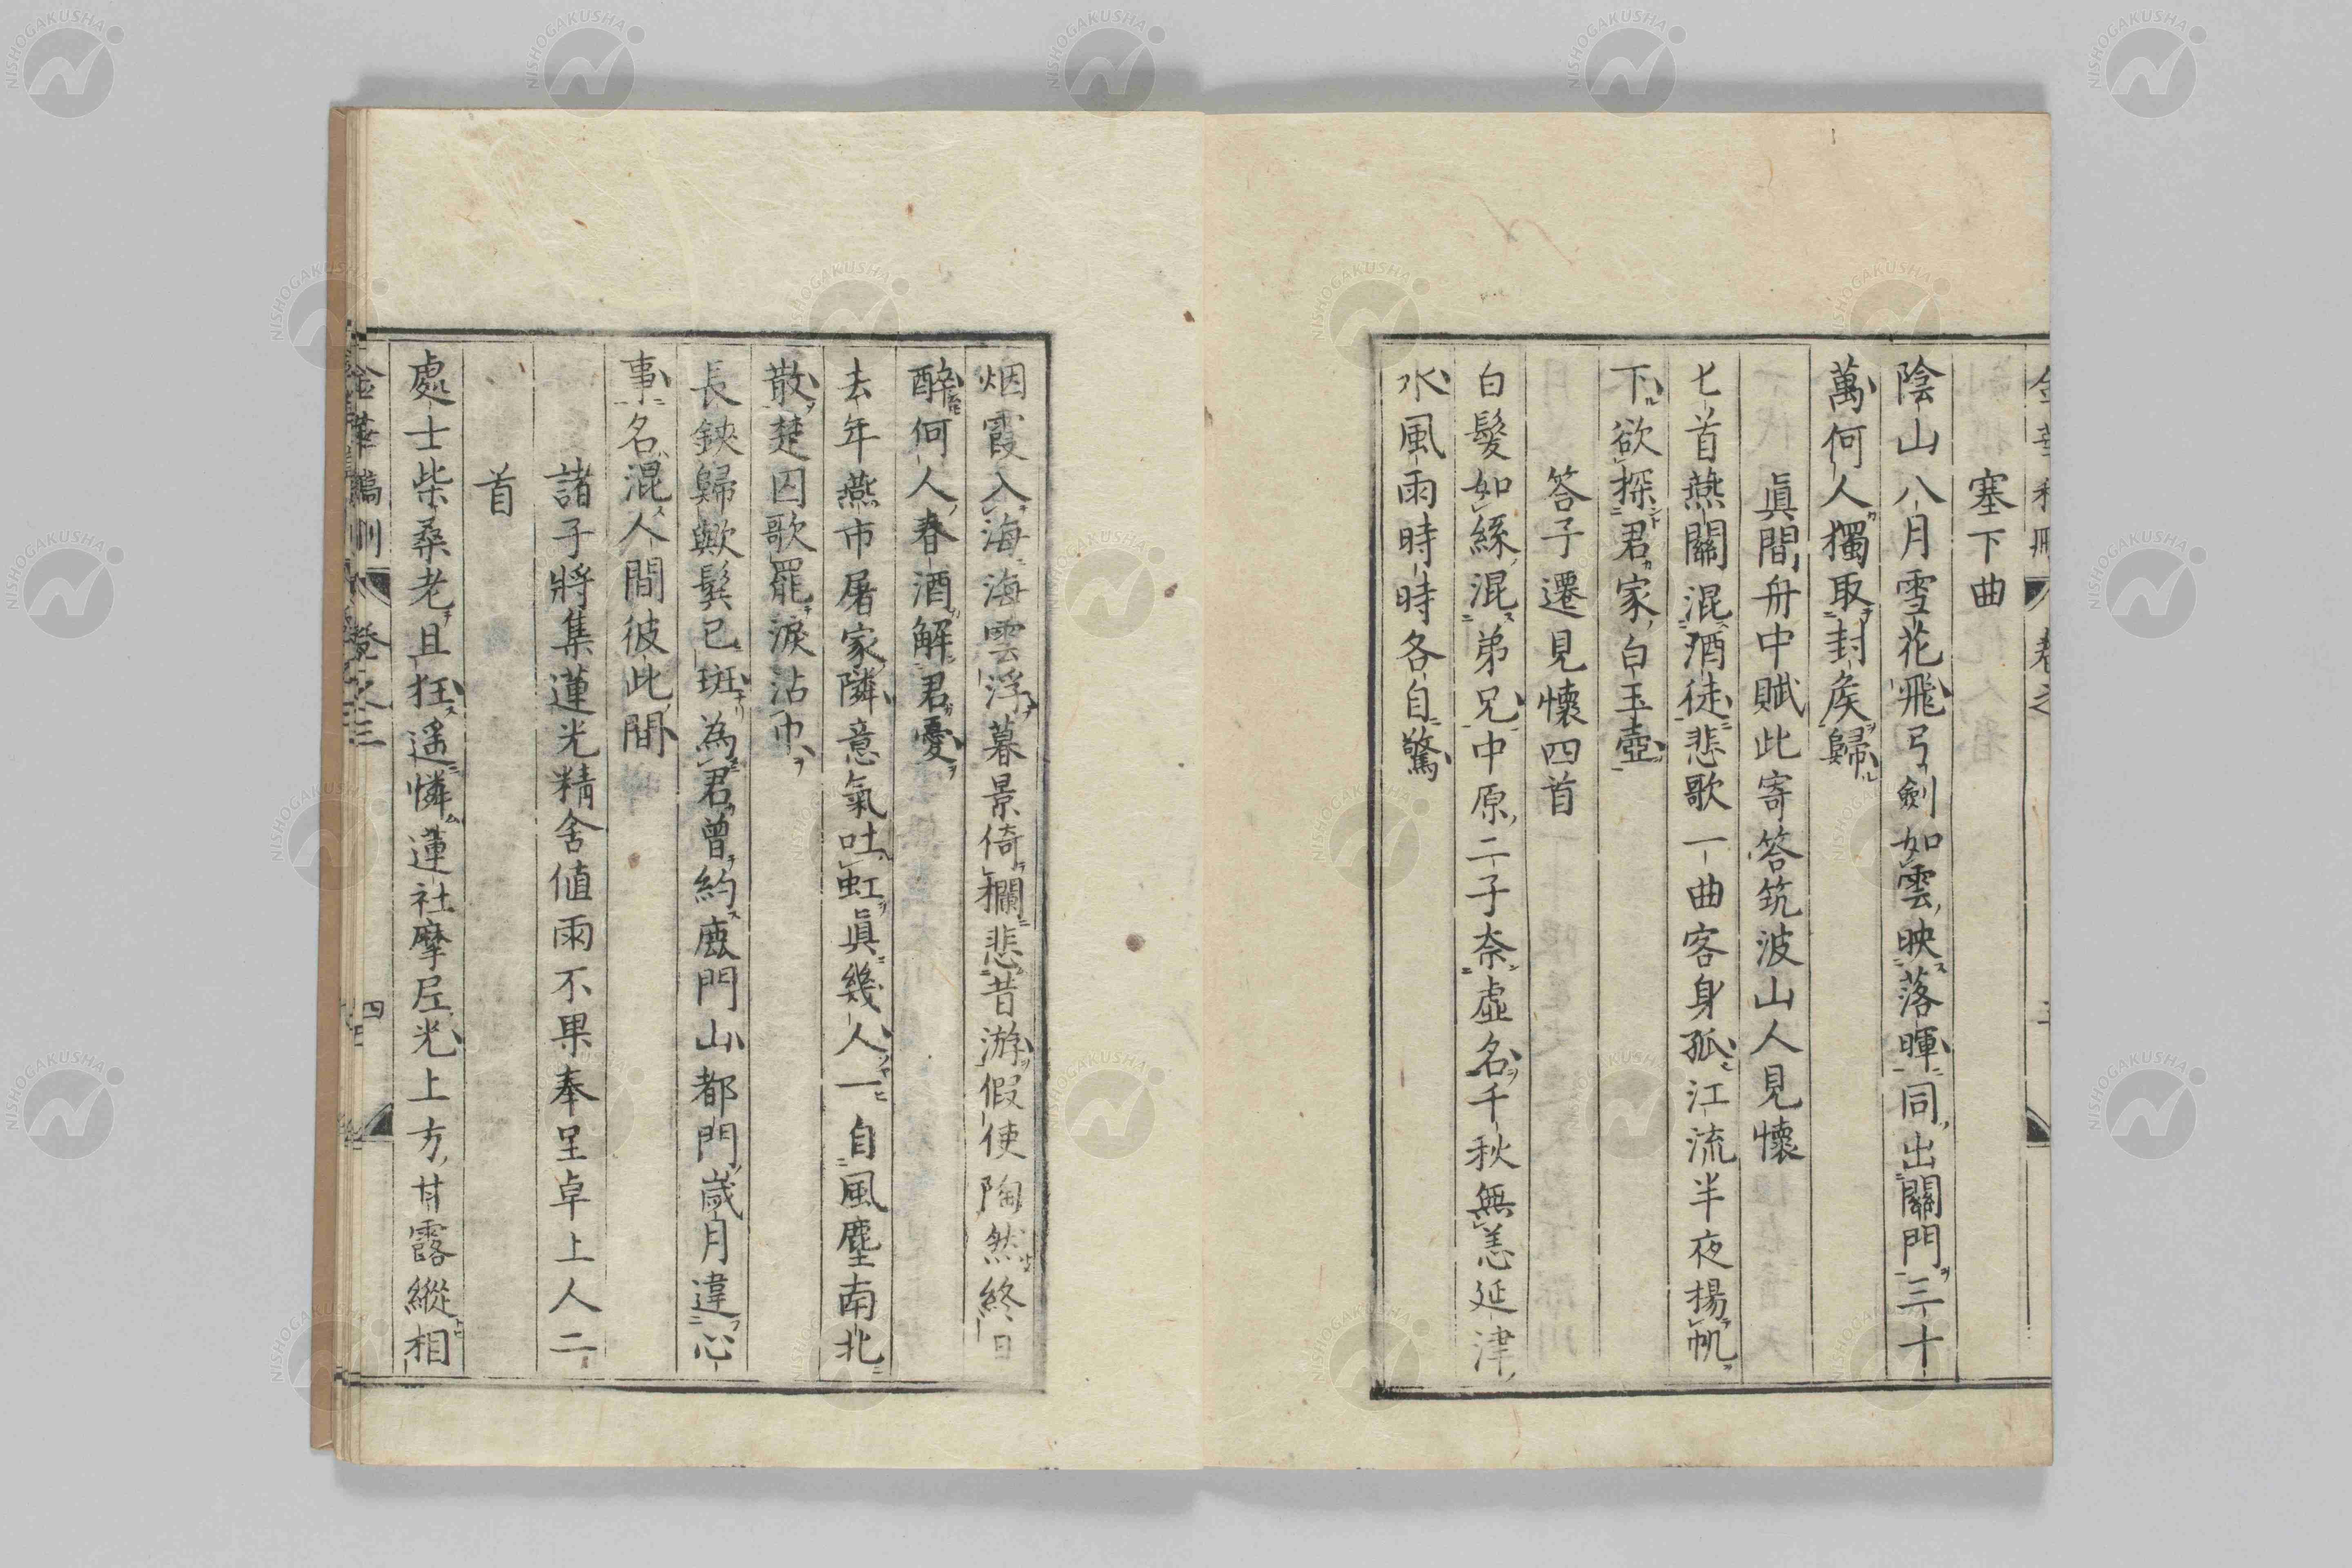 塞下曲
陰山八月雪花飛弓劍如雲映落暉同出關門三十
萬何人獨取封矦歸
眞間舟中賦此寄答筑波山人見懷
匕首燕關混酒徒悲歌一曲客身孤江流半夜揚帆
下欲探君家白玉壺
答子遷見懷四首
白髮如絲混弟兄中原二子奈虛名千秋無恙延津
水風雨時時各自驚
烟霞入海海雲浮暮景倚欄悲昔游假使陶然終日
醉何人春酒解君憂
去年燕市屠家隣意氣吐虹眞幾人一自風塵南北
散楚囚歌罷淚沾巾
長鋏歸歟鬂已斑為君曾約鹿門山都門歲月違心
事名混人間彼此間
諸子將集蓮光精舍値雨不果奉呈卓上人二
首
處士柴桑老且狂遙憐蓮社摩尼光上方甘露縱相
金華稿刪 卷之三 四